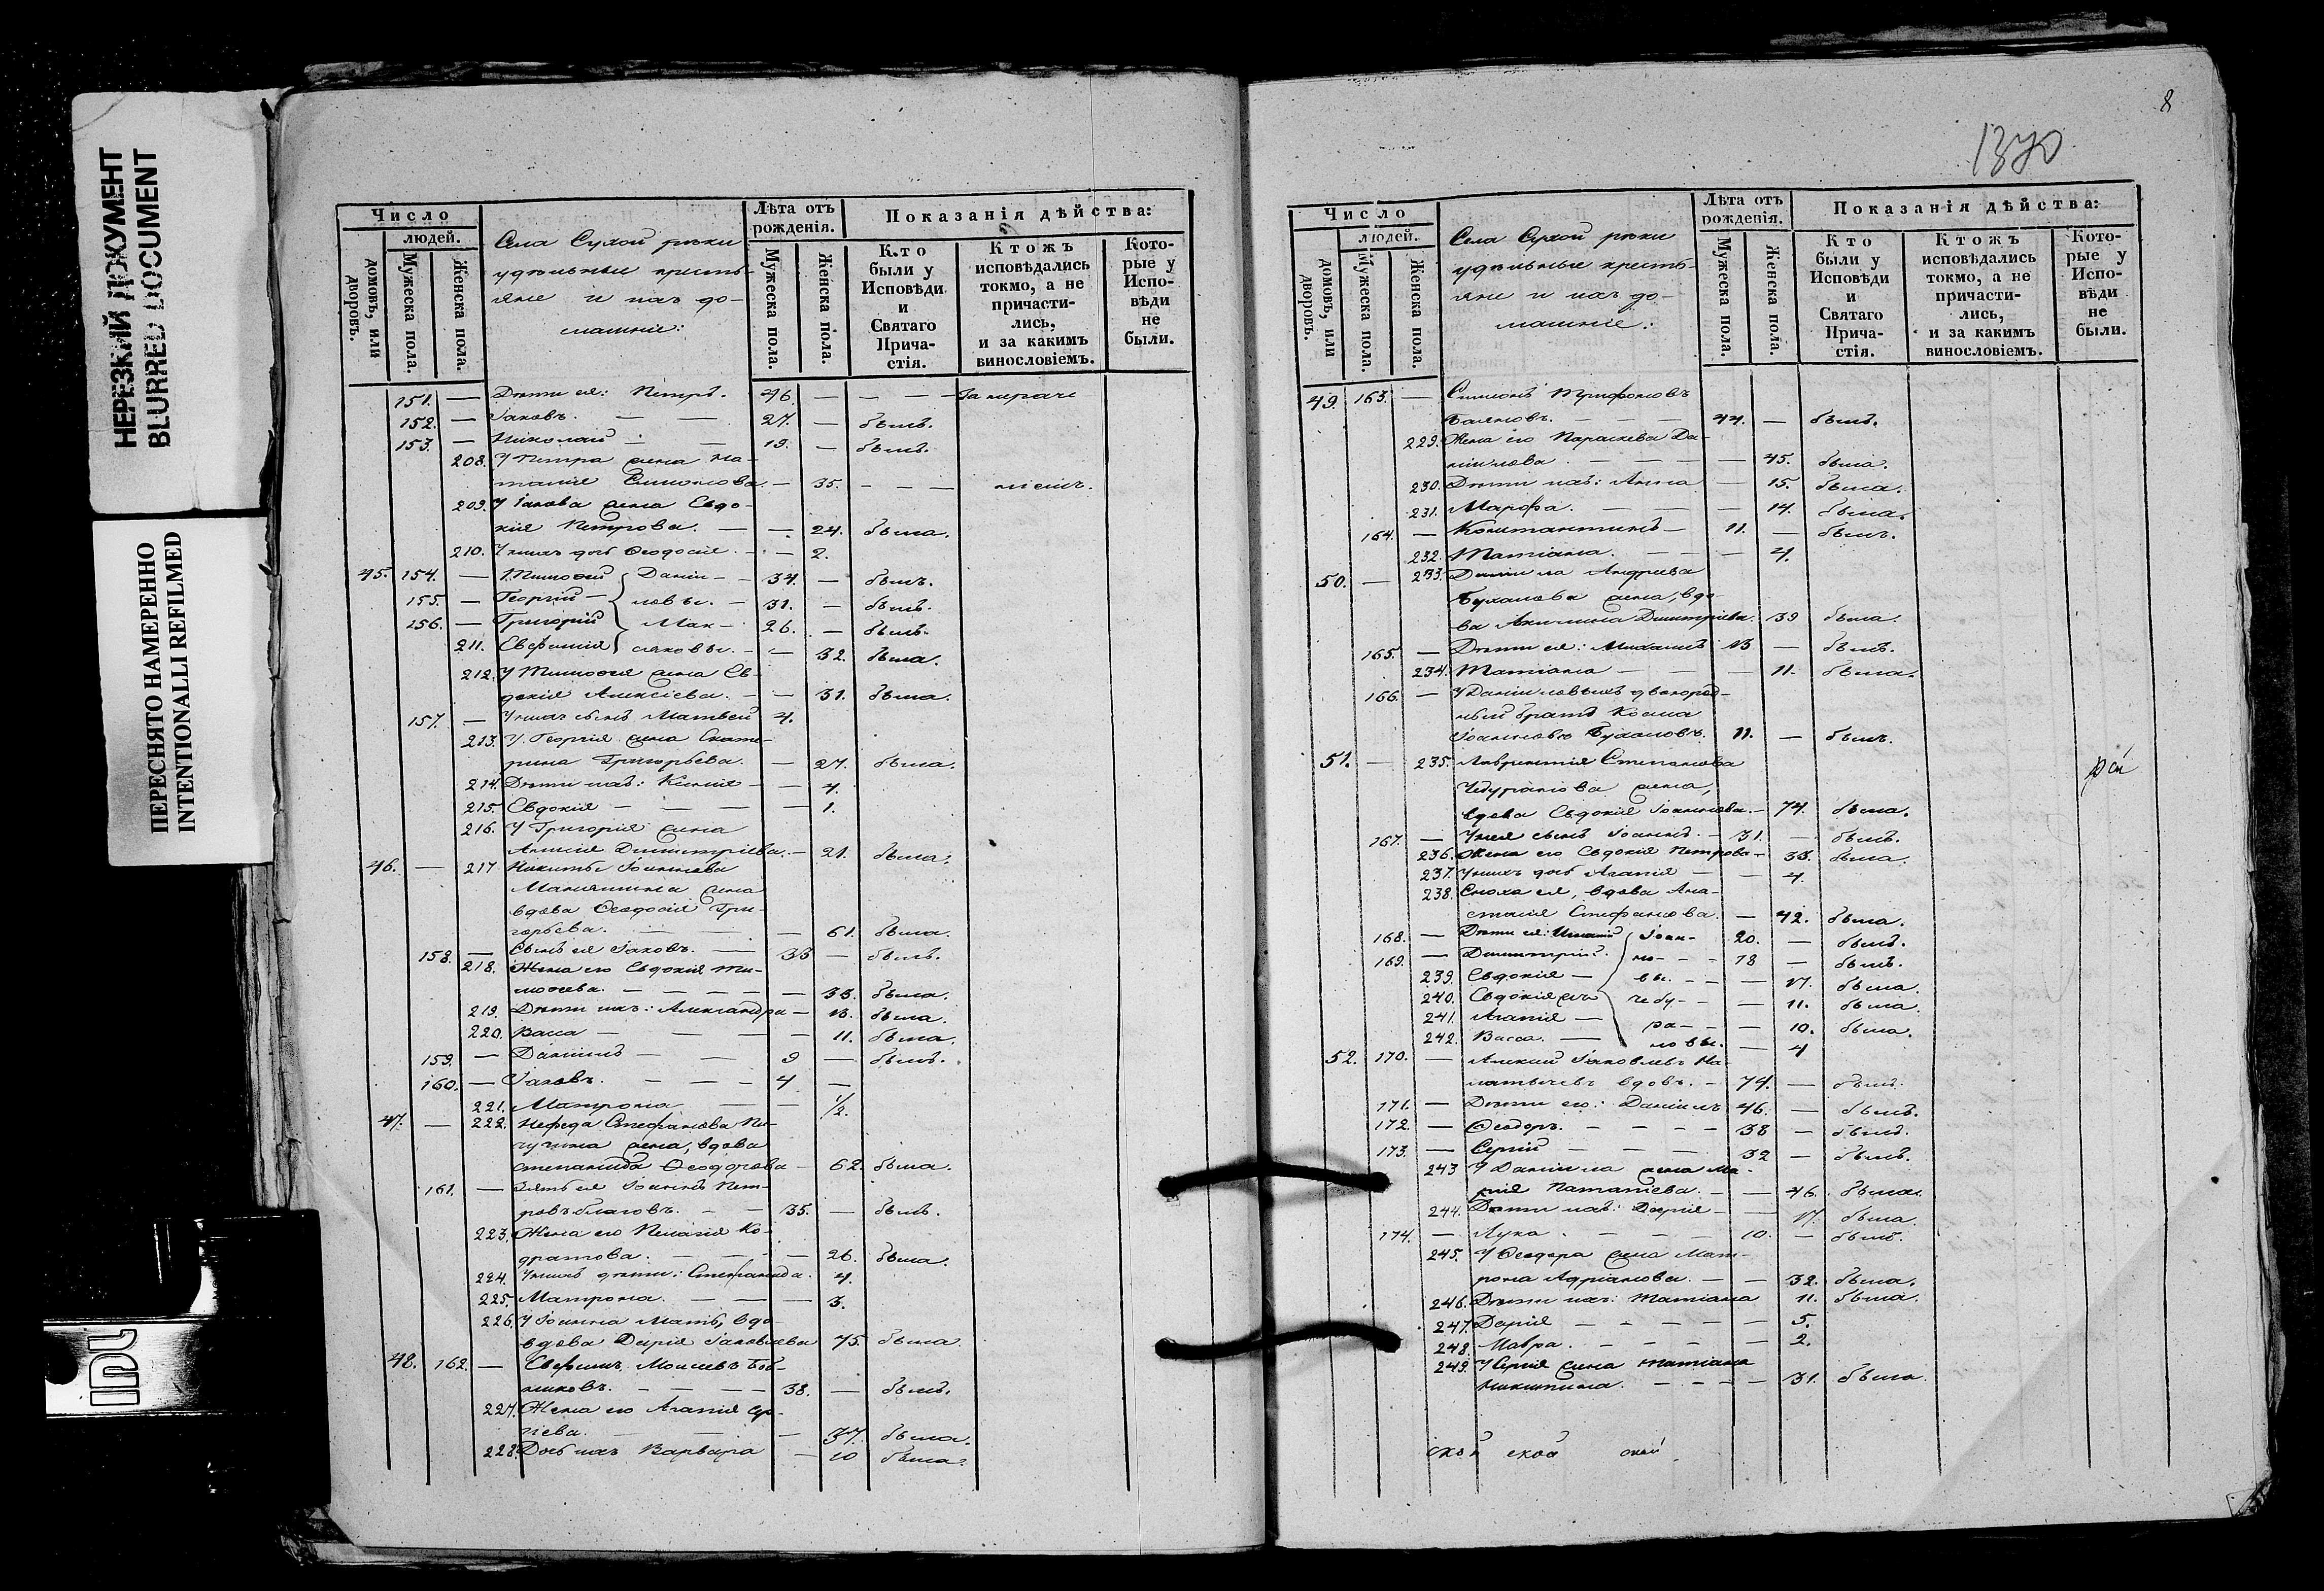 НЕРЕЗКИЙ ДОКУМЕНТ
BLURRED DOCUMENT
ПЕРЕСНЯТО НАМЕРЕННО
INTENTIONALLI REFILMED
Число
людей.
домовъ, или дворовъ.
Мужеска пола.
Женска пола.
Села Сухой рѣки
удѣльные кресть-
яне и ихъ до-
машніе:
Лѣта отъ рожденія.
Мужеска пола.
Женска пола.
Показанія дѣйства:
Кто были у Исповѣди и Святаго Прича-стія.
Ктожъ исповѣдались токмо, а не причасти-лись, и за какимъ винословіемъ.
Кото-рые у Испо-вѣди не были.
151. — Дѣти ея: Петръ. 46. — — — —
152. — Іаковъ. — — 27. — былъ.
153. — Николай — — 19. — былъ.
208. У Петра жена На-
талія Симонова. — 35. — — —
209. У Іакова жена Евдо-
кія Петрова. — — 24. была.
210. У нихъ дочь Ѳеодосія. — — 2.
45. 154. — Тимоѳей Даніи- — 34. — былъ.
155. — Георгій — ловы. — 31. — былъ.
156. — Григорій Мак- 26. — былъ.
211. Евфимія саковы. — — 32. была.
212. У Тимоѳея жена Ев-
докія Алексіева. — — 31. была.
157. — У нихъ сынъ Матвей 4.
213. У Георгія жена Екате-
рина Григорьева. — 27. была.
214. Дѣти ихъ: Ксенія — — 4.
215. Евдокія — — — — 1.
216. У Григорія жена
Анисія Димитріева. — 21. была.
46. — 217 Никиты Іоаннова
жена
вдова Ѳеодосія Гри-
горьева. — — — 61. была.
158. — Сынъ ея Іаковъ. — 33 — былъ.
218. Жена его Евдокія Ти-
моѳеева. — — — — 33. была.
219. Дѣти ихъ: Александра — 13. была.
220. Васса — — — 11. была.
159. — Даніилъ — — 9 — былъ.
160. — Іаковъ. — — — 4 —
221. Матрона — — 1/2.
47. — 222. Нефеда Стефанова Пи-
чугина жена, вдова
Степанида Ѳеодорова — 62. была.
161. — Зять ея Іоаннъ Пет-
ровъ — — 35. — былъ.
223. Жена его Пелагія Ко-
дратова. — — — — 26. была.
224. У нихъ дѣти: Степанида. 4.
225. Матрона. — — — 3.
226. У Іоанна мать, вдо-
вдова Дарія Іаковлева 75. была.
48. 162. — Евфимъ Моисеевъ Боб-
ышковъ. — — — — 38. — былъ.
227. Жена его Агапія Сер-
гіева. — — — 37. была.
228. Дочь ихъ Варвара — 10 была.
8
1370
Число
людей.
домовъ, или дворовъ.
Мужеска пола.
Женска пола.
Села Сухой рѣки
удѣльные кресть-
яне и ихъ до-
машніе:
Лѣта отъ рожденія.
Мужеска пола.
Женска пола.
Показанія дѣйства:
Кто были у Исповѣди и Святаго Прича-стія.
Ктожъ исповѣдались токмо, а не причасти-лись, и за какимъ винословіемъ.
Кото-рые у Испо-вѣди не были.
49. 163. — Симеонъ Трифоновъ
— — — 44. — былъ.
229. Жена его Параскева Да-
ніилова. — — — — 45. была.
230. Дѣти ихъ: Анна — 15. была.
231. Марѳа. — — — 14. была.
164. — Константинъ — 11. — былъ.
232. Матіана. — — — 4.
50. — 233. Даніила Андреева
Буханова жена, вдо-
ва Акилина Димитріева. 39 была.
165. — Дѣти ея: Михаилъ 13 — былъ.
234. Татіана — — — 11. была.
166. — У Даніиловыхъ двоюрод-
ный братъ Косма
Іоанновъ Бухановъ. 11. — былъ.
51. — 235. Лаврентія Степанова
жена,
вдова Евдокія Іоаннова. — 74. была.
167. — У нея сынъ Іоаннъ. — 31. — былъ.
236. Жена его Евдокія Петрова — 33. была.
237. У нихъ дочь Агапія — — 4.
238. Сноха ея, вдова Ана-
стасія Стефанова. — 42. была.
168. — Дѣти ея: Игнатій Іоан- 20. — былъ.
169. — Димитрій. но- — — 18 — былъ.
239. Евдокія — вы. — — — 17. была.
240. Евдокія чебу- — — 11. была
241. Агапія — ра- — — 10. была.
242. Васса. — новы. — 4
52. 170. — Алексій Іаковлевъ
вдовъ. — 74. — былъ.
171. — Дѣти его: Даніилъ 46. — былъ.
172. — Ѳеодоръ. — — — — 38 — былъ.
173. — Сергій — — — 32 — былъ.
243 У Даніила жена Ма-
рія — — 46. была.
244. Дѣти ихъ: Дарія — — 17. была.
174. — Лука. — — — — 10. — былъ.
245. У Ѳеодора жена Мат-
рона Адріанова. — — 32. была.
246. Дѣти ихъ: Татіана 11. была.
247. Дарія — — — — — 5.
248. Мавра. — — — — 2.
249. У Сергія жена Татіана
Никитина. — — — — 31. была
ской ской ской